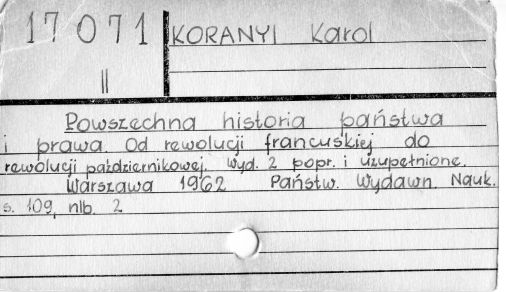 17071 KORANYI Karol
II
Powszechna historia państwa
i prawa. Od rewolucji francuskiej do
rewolucji październikowej. Wyd. 2 popr. i uzupełnione.
Warszawa 1962 Państw. Wydawn. Nauk.
s. 109, nlb. 2